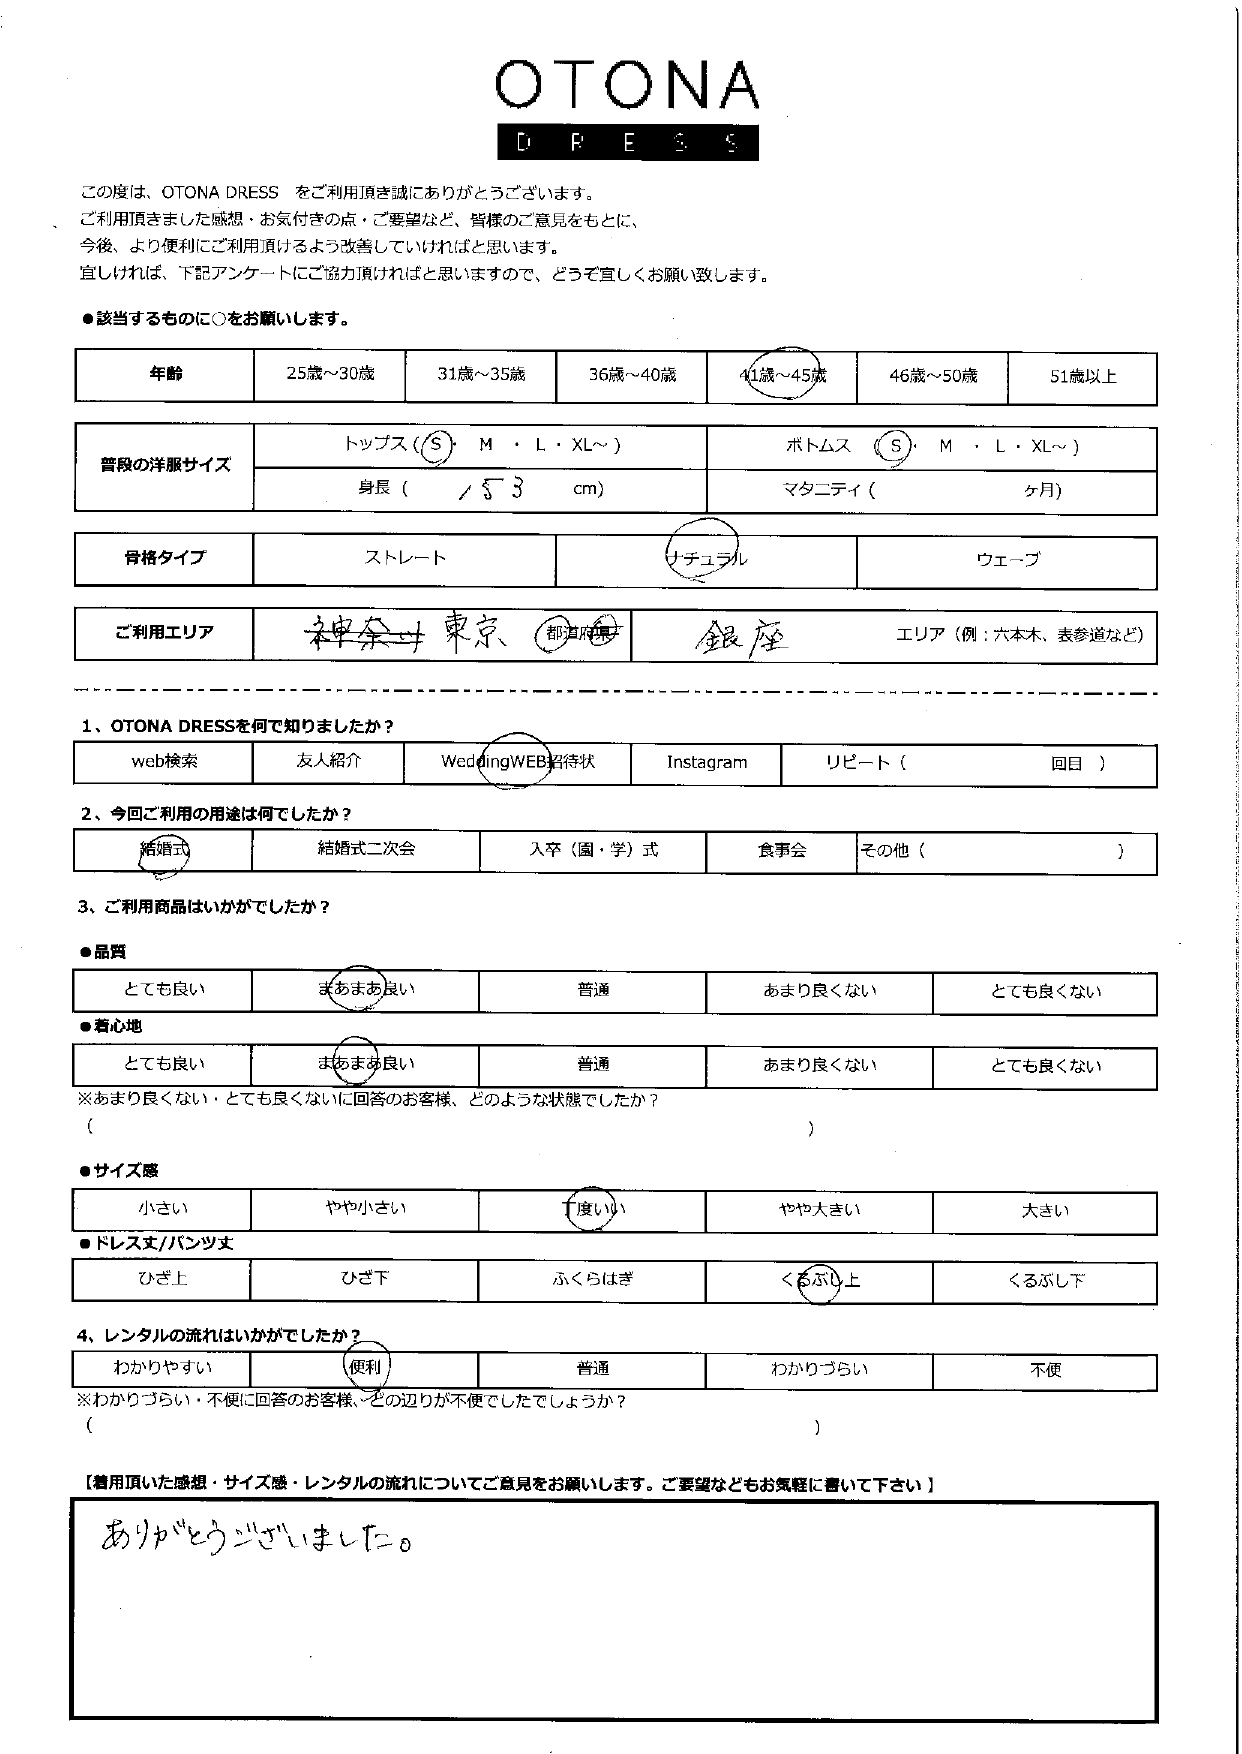 OTONA
DRESS
この度は、OTONA DRESS　をご利用頂き誠にありがとうございます。
ご利用頂きました感想・お気付きの点・ご要望など、皆様のご意見をもとに、
今後、より便利にご利用頂けるよう改善していければと思います。
宜しければ、下記アンケートにご協力頂ければと思いますので、どうぞ宜しくお願い致します。
●該当するものに○をお願いします。
年齢 25歳～30歳 31歳～35歳 36歳～40歳 41歳～45歳 46歳～50歳 51歳以上
普段の洋服サイズ トップス ( S ・ M ・ L ・ XL～ ) ボトムス ( S ・ M ・ L ・ XL～ )
身長 ( 153 cm) マタニティ ( ヶ月)
骨格タイプ ストレート ナチュラル ウェーブ
ご利用エリア 神奈川 東京 都道府県 銀座 エリア（例：六本木、表参道など）
1、OTONA DRESSを何で知りましたか？
web検索 友人紹介 WeddingWEB招待状 Instagram リピート（ 回目 ）
2、今回ご利用の用途は何でしたか？
結婚式 結婚式二次会 入卒（園・学）式 食事会 その他（ ）
3、ご利用商品はいかがでしたか？
●品質
とても良い まあまあ良い 普通 あまり良くない とても良くない
●着心地
とても良い まあまあ良い 普通 あまり良くない とても良くない
※あまり良くない・とても良くないに回答のお客様、どのような状態でしたか？
( )
●サイズ感
小さい やや小さい 丁度いい やや大きい 大きい
●ドレス丈/パンツ丈
ひざ上 ひざ下 ふくらはぎ くるぶし上 くるぶし下
4、レンタルの流れはいかがでしたか？
わかりやすい 便利 普通 わかりづらい 不便
※わかりづらい・不便に回答のお客様、どの辺りが不便でしたでしょうか？
( )
【着用頂いた感想・サイズ感・レンタルの流れについてご意見をお願いします。ご要望などもお気軽に書いて下さい 】
ありがとうございました。